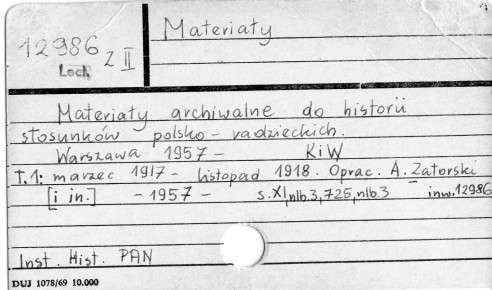 Materiały
12986 z II
Lock
Materiały archiwalne do historii
stosunków polsko-radzieckich.
Warszawa 1957- KiW
T.1: marzec 1917- listopad 1918. Oprac. A. Zatorski
[i in.] -1957- s.XI,nlb.3,725,nlb.3 inw.12986
Inst. Hist. PAN
DUJ 1078/69 10.000